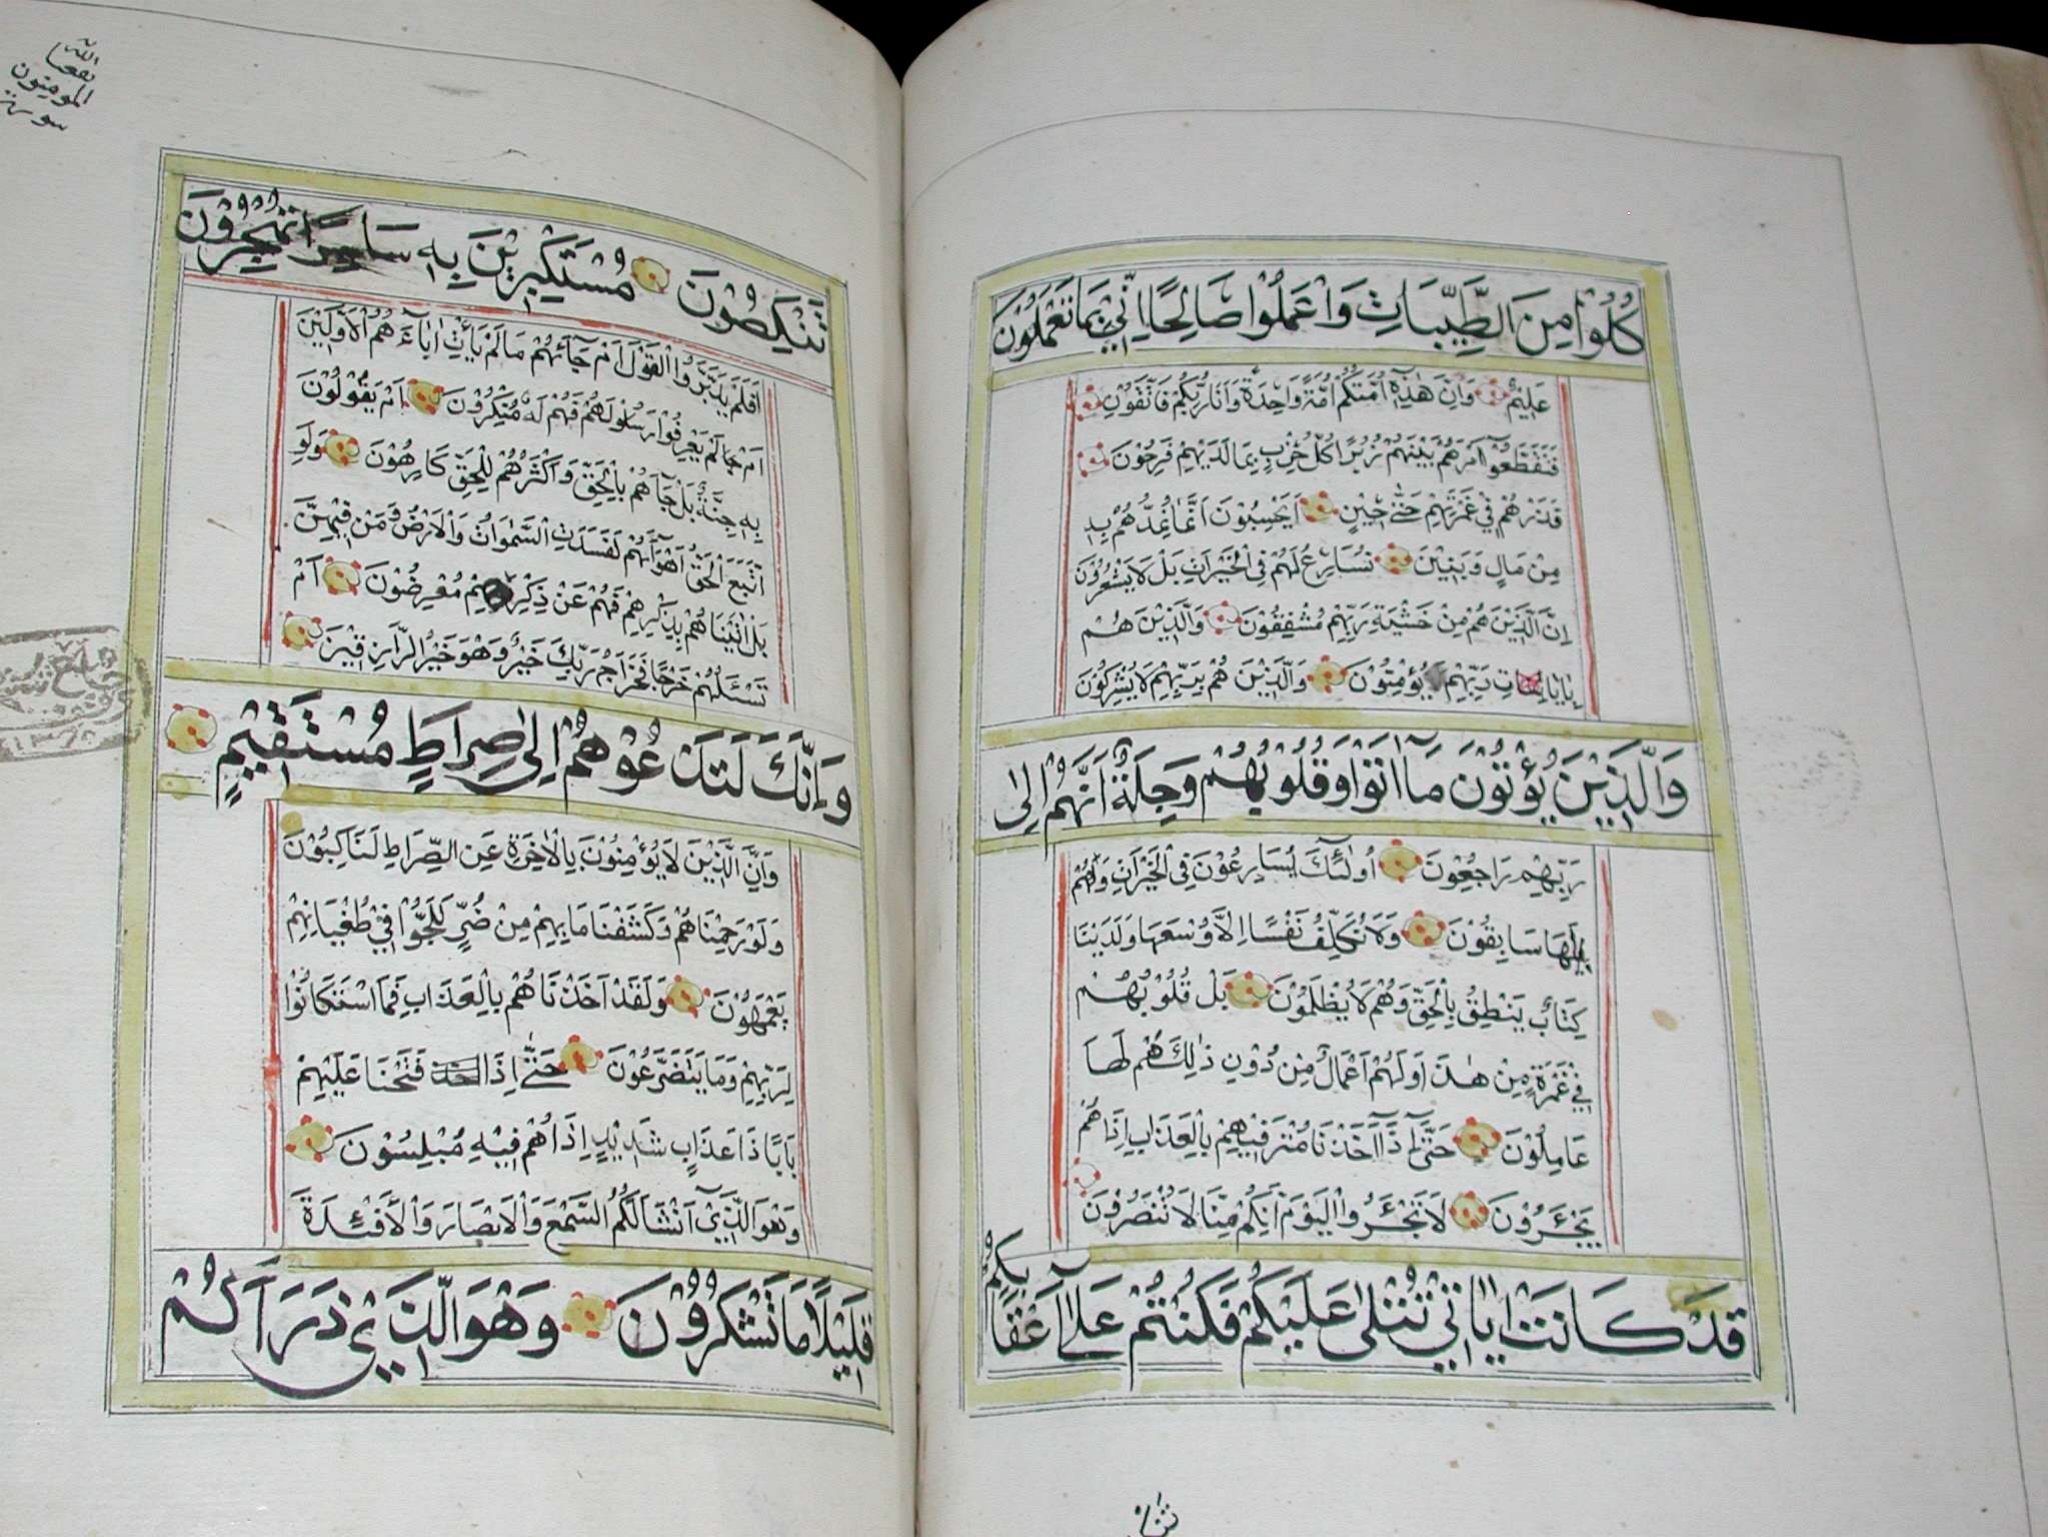 كُلُوْا مِنَ الطَّيِّبَاتِ وَاعْمَلُوْا صَالِحًا اِنِّيْ بِمَا تَعْمَلُوْنَ
عَلِيْمٌ وَاِنَّ هٰذِهٖٓ اُمَّتُكُمْ اُمَّةً وَّاحِدَةً وَاَنَا رَبُّكُمْ فَاتَّقُوْنِ
فَتَقَطَّعُوْٓا اَمْرَهُمْ بَيْنَهُمْ زُبُرًا كُلُّ حِزْبٍ بِمَا لَدَيْهِمْ فَرِحُوْنَ
فَذَرْهُمْ فِيْ غَمْرَتِهِمْ حَتّٰى حِيْنٍ اَيَحْسَبُوْنَ اَنَّمَا نُمِدُّهُمْ بِهٖ
مِنْ مَالٍ وَبَنِيْنَ نُسَارِعُ لَهُمْ فِى الْخَيْرَاتِ بَلْ لَا يَشْعُرُوْنَ
اِنَّ الَّذِيْنَ هُمْ مِنْ خَشْيَةِ رَبِّهِمْ مُشْفِقُوْنَ وَالَّذِيْنَ هُمْ
بِاٰيَاتِ رَبِّهِمْ يُؤْمِنُوْنَ وَالَّذِيْنَ هُمْ بِرَبِّهِمْ لَا يُشْرِكُوْنَ
وَالَّذِيْنَ يُؤْتُوْنَ مَآ اٰتَوْا وَقُلُوْبُهُمْ وَجِلَةٌ اَنَّهُمْ اِلٰى
رَبِّهِمْ رَاجِعُوْنَ اُولٰٓئِكَ يُسَارِعُوْنَ فِى الْخَيْرَاتِ وَهُمْ
لَهَا سَابِقُوْنَ وَلَا نُكَلِّفُ نَفْسًا اِلَّا وُسْعَهَا وَلَدَيْنَا
كِتَابٌ يَنْطِقُ بِالْحَقِّ وَهُمْ لَا يُظْلَمُوْنَ بَلْ قُلُوْبُهُمْ
فِيْ غَمْرَةٍ مِنْ هٰذَا وَلَهُمْ اَعْمَالٌ مِنْ دُوْنِ ذٰلِكَ هُمْ لَهَا
عَامِلُوْنَ حَتّٰٓى اِذَآ اَخَذْنَا مُتْرَفِيْهِمْ بِالْعَذَابِ اِذَا هُمْ
يَجْئَرُوْنَ لَا تَجْئَرُوا الْيَوْمَ اِنَّكُمْ مِنَّا لَا تُنْصَرُوْنَ
قَدْ كَانَتْ اٰيَاتِيْ تُتْلٰى عَلَيْكُمْ فَكُنْتُمْ عَلٰٓى اَعْقَابِكُمْ
تَنْكِصُوْنَ مُسْتَكْبِرِيْنَ بِهٖ سَامِرًا تَهْجُرُوْنَ
اَفَلَمْ يَدَّبَّرُوا الْقَوْلَ اَمْ جَآئَهُمْ مَا لَمْ يَأْتِ اٰبَآءَهُمُ الْاَوَّلِيْنَ
اَمْ لَمْ يَعْرِفُوْا رَسُوْلَهُمْ فَهُمْ لَهٗ مُنْكِرُوْنَ اَمْ يَقُوْلُوْنَ
بِهٖ جِنَّةٌ بَلْ جَآءَهُمْ بِالْحَقِّ وَاَكْثَرُهُمْ لِلْحَقِّ كَارِهُوْنَ وَلَوِ
اتَّبَعَ الْحَقُّ اَهْوَآءَهُمْ لَفَسَدَتِ السَّمٰوَاتُ وَالْاَرْضُ وَمَنْ فِيْهِنَّ
بَلْ اٰتَيْنَاهُمْ بِذِكْرِهِمْ فَهُمْ عَنْ ذِكْرِهِمْ مُعْرِضُوْنَ اَمْ
تَسْئَلُهُمْ خَرْجًا فَخَرَاجُ رَبِّكَ خَيْرٌ وَهُوَ خَيْرُ الرَّازِقِيْنَ
وَاِنَّكَ لَتَدْعُوْهُمْ اِلٰى صِرَاطٍ مُسْتَقِيْمٍ
وَاِنَّ الَّذِيْنَ لَا يُؤْمِنُوْنَ بِالْاٰخِرَةِ عَنِ الصِّرَاطِ لَنَاكِبُوْنَ
وَلَوْ رَحِمْنَاهُمْ وَكَشَفْنَا مَا بِهِمْ مِنْ ضُرٍّ لَلَجُّوْا فِيْ طُغْيَانِهِمْ
يَعْمَهُوْنَ وَلَقَدْ اَخَذْنَاهُمْ بِالْعَذَابِ فَمَا اسْتَكَانُوْا
لِرَبِّهِمْ وَمَا يَتَضَرَّعُوْنَ حَتّٰٓى اِذَا فَتَحْنَا عَلَيْهِمْ
بَابًا ذَا عَذَابٍ شَدِيْدٍ اِذَا هُمْ فِيْهِ مُبْلِسُوْنَ
وَهُوَ الَّذِيْٓ اَنْشَاَ لَكُمُ السَّمْعَ وَالْاَبْصَارَ وَالْاَفْئِدَةَ
قَلِيْلًا مَا تَشْكُرُوْنَ وَهُوَ الَّذِيْ ذَرَاَكُمْ
الله
المومنون
سورة